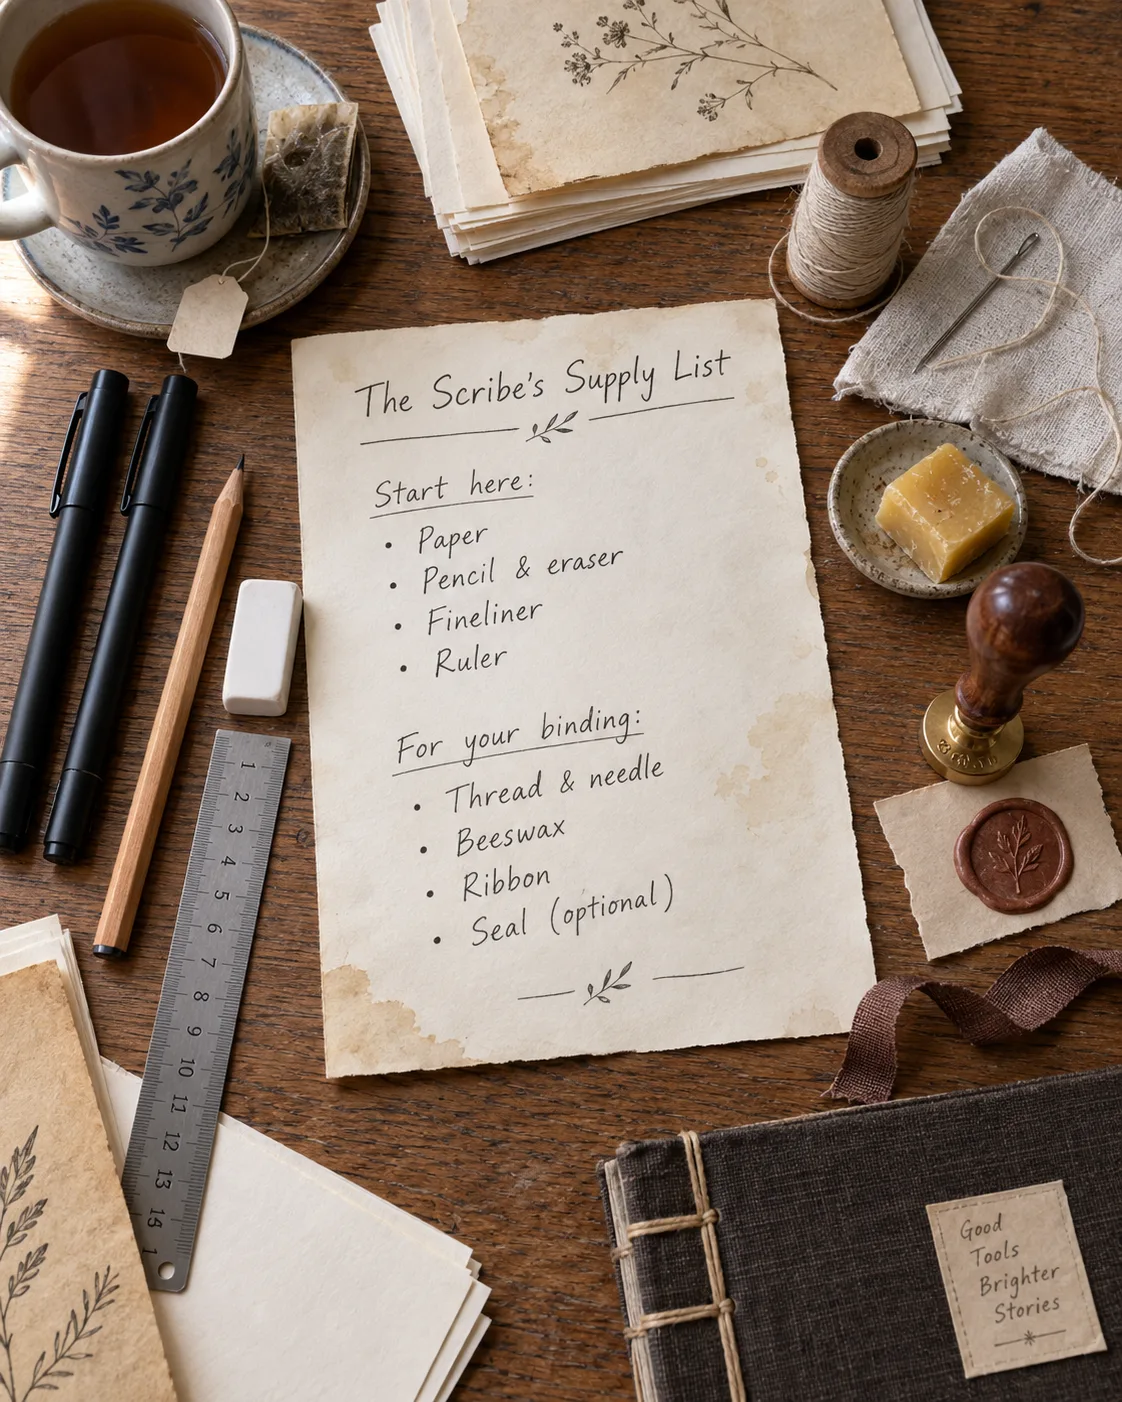 The Scribe's Supply List
Start here:
• Paper
• Pencil & eraser
• Fineliner
• Ruler
For your binding:
• Thread & needle
• Beeswax
• Ribbon
• Seal (optional)
1
2
3
4
5
6
7
8
9
10
11
12
13
14
1
Good
Tools
Brighter
Stories